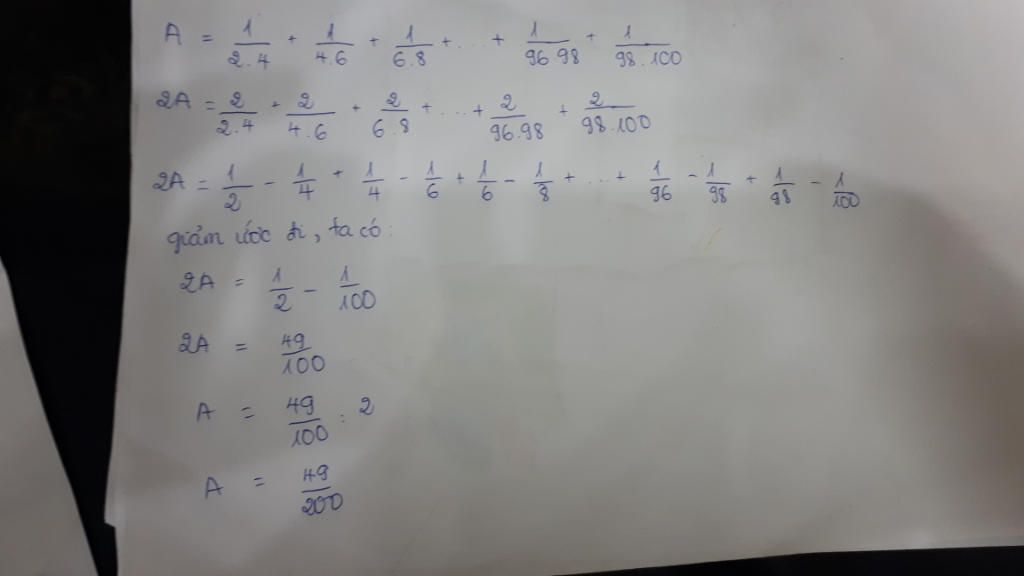 A = 1/2.4 + 1/4.6 + 1/6.8 + ... + 1/96.98 + 1/98.100
2A = 2/2.4 + 2/4.6 + 2/6.8 + ... + 2/96.98 + 2/98.100
2A = 1/2 - 1/4 + 1/4 - 1/6 + 1/6 - 1/8 + ... + 1/96 - 1/98 + 1/98 - 1/100
giảm ước đi, ta có:
2A = 1/2 - 1/100
2A = 49/100
A = 49/100 : 2
A = 49/200